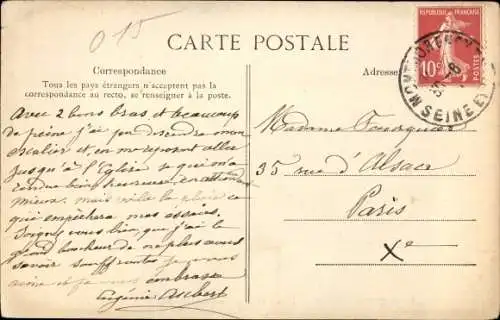 015
CARTE POSTALE
REPUBLIQUE FRANÇAISE
10c
POSTES
MONTMORENCY
SEINE ET
Correspondance
Tous les pays étrangers n'acceptent pas la
correspondance au recto, se renseigner à la poste.
Adresse
Avec 2 bons bras et beaucoup
de peine j'ai pu descendre mon
escalier et en me reposant aller
jusqu'à l'Eglise ce qui m'a
rendue bien heureuse en attendant
mieux. mais voilà la pluie ce
qui empêchera mes essais.
Soignez vous bien, que j'ai le
grand bonheur de ne plus vous
savoir souffrante je vous
aime et je vous embrasse
Eugénie Aubert
Madame
35 rue d'Alsace
Paris
Xe